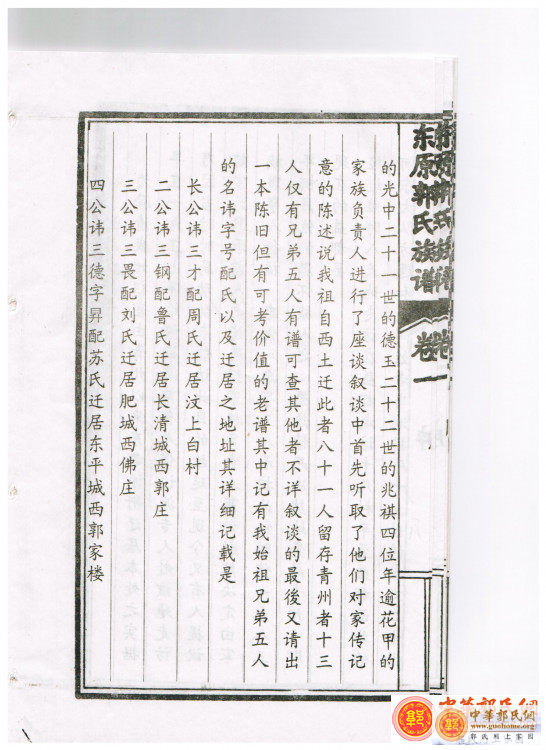 东原郭氏族谱
卷一
的光中二十一世的德玉二十二世的兆祺四位年逾花甲的
家族负责人进行了座谈叙谈中首先听取了他们对家传记
意的陈述说我祖自西土迁此者八十一人留存青州者十三
人仅有兄弟五人有谱可查其他者不详叙谈的最後又请出
一本陈旧但有可考价值的老谱其中记有我始祖兄弟五人
的名讳字号配氏以及迁居之地址其详细记载是
长公讳三才配周氏迁居汶上白村
二公讳三钢配鲁氏迁居长清城西郭庄
三公讳三畏配刘氏迁居肥城西佛庄
四公讳三德字昇配苏氏迁居东平城西郭家楼
中华郭氏网
www.guohome.org
郭氏网上家园